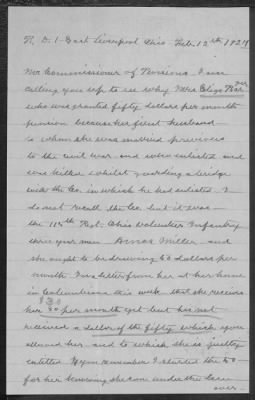 R. D. 1 - East Liverpool Ohio Feb. 12th 1924
Mr Commissioner of Pensions I am
calling you up to see why Mrs Eliza
who was granted fifty dollars per month
pension because her first husband
to whom she was married previous
to the civil war, and who enlisted and
was killed whilst guarding a bridge
with the Co. in which he had enlisted. I
do not recall the Co. but it was
the 115th Regt. Ohio Volunteers Infantry
three year men Amos Miller, and
she ought to be drawing 50 dollars per
month. In a letter from her at her home
in Columbiana this week, that she receives
$30
her 30 per month yet but has not
received a dollar of the fifty which you
allowed her, and to which she is justly
entitled. If you remember I started the 50
for her knowing she on under the law
over.